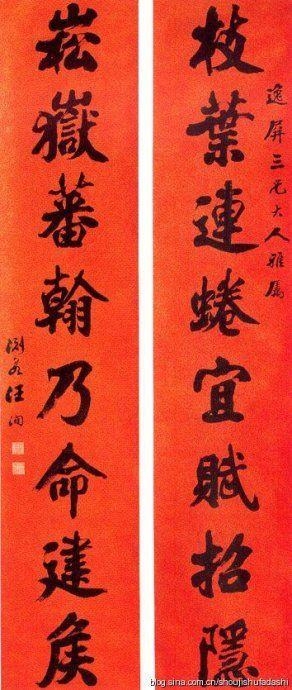 逸屏三兄大人雅屬
枝葉連蜷宜賦招隱
崧嶽蕃翰乃命建侯
淵若汪洵
blog.sina.com.cn/shoujishufadashi